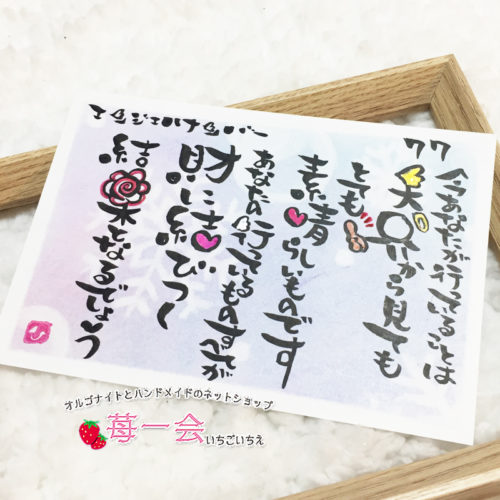 エンジェルナンバー
77
今あなたが行っていることは
天界から見ても
とても
素晴らしいものです
あなたの行っているものすべてが
財に結びつく
結果となるでしょう
オルゴナイトとハンドメイドのネットショップ
苺一会いちごいちえ